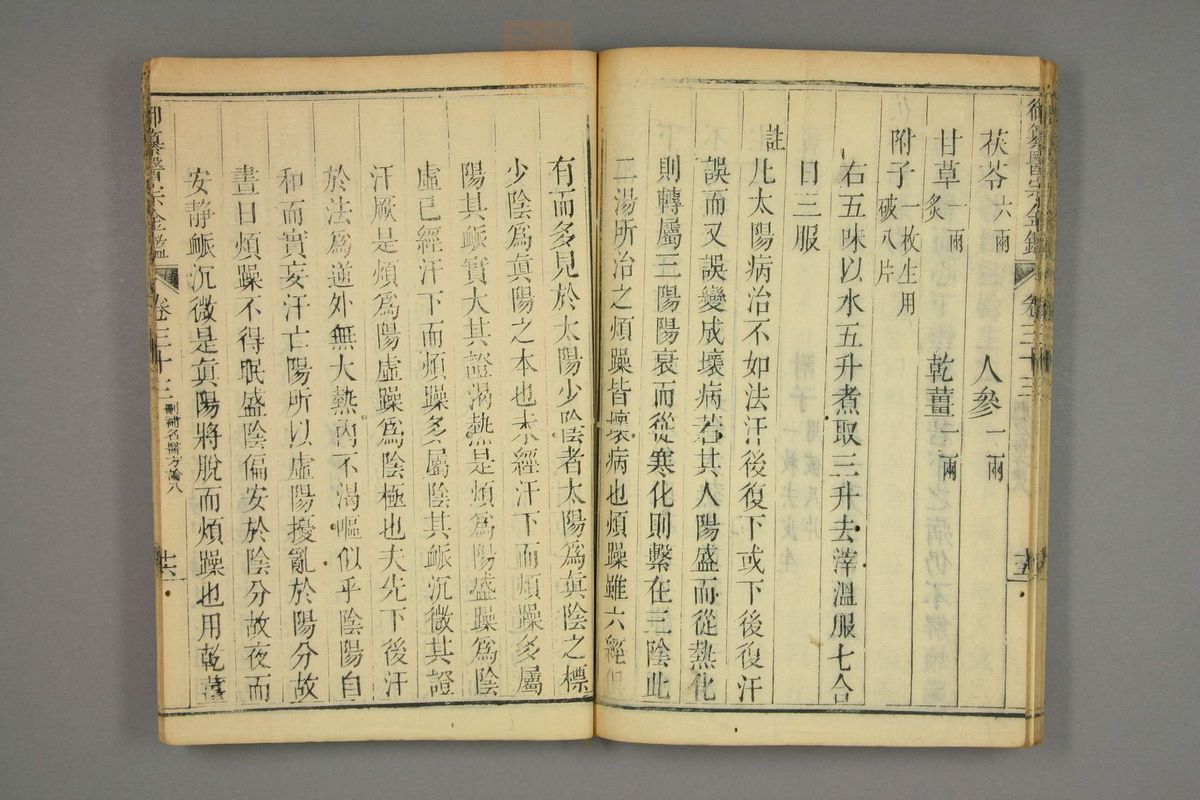 茯苓六兩　人參一兩
甘草一兩炙　乾薑一兩
附子一枚生用破八片
右五味以水五升煮取三升去滓溫服七合
日三服
註
凡太陽病治不如法汗後復下或下後復汗
誤而又誤變成壞病若其人陽盛而從熱化
則轉屬三陽陽衰而從寒化則繫在三陰此
二湯所治之煩躁皆壞病也煩躁雖六經俱
有而多見於太陽少陰者太陽為眞陰之標
少陰為眞陽之本也未經汗下而煩躁多屬
陽其脈實大其證渴熱是煩為陽盛躁為陰
虛已經汗下而煩躁多屬陰其脈沉微其證
汗厥是煩為陽虛躁為陰極也夫先下後汗
於法為逆外無大熱內不渴嘔似乎陰陽自
和而實妄汗亡陽所以虛陽擾亂於陽分故
晝日煩躁不得眠盛陰偏安於陰分故夜而
安静脈沉微是眞陽將脫而煩躁也用乾薑
御纂醫宗金鑑　卷三十三　刪補名醫方論八　十六